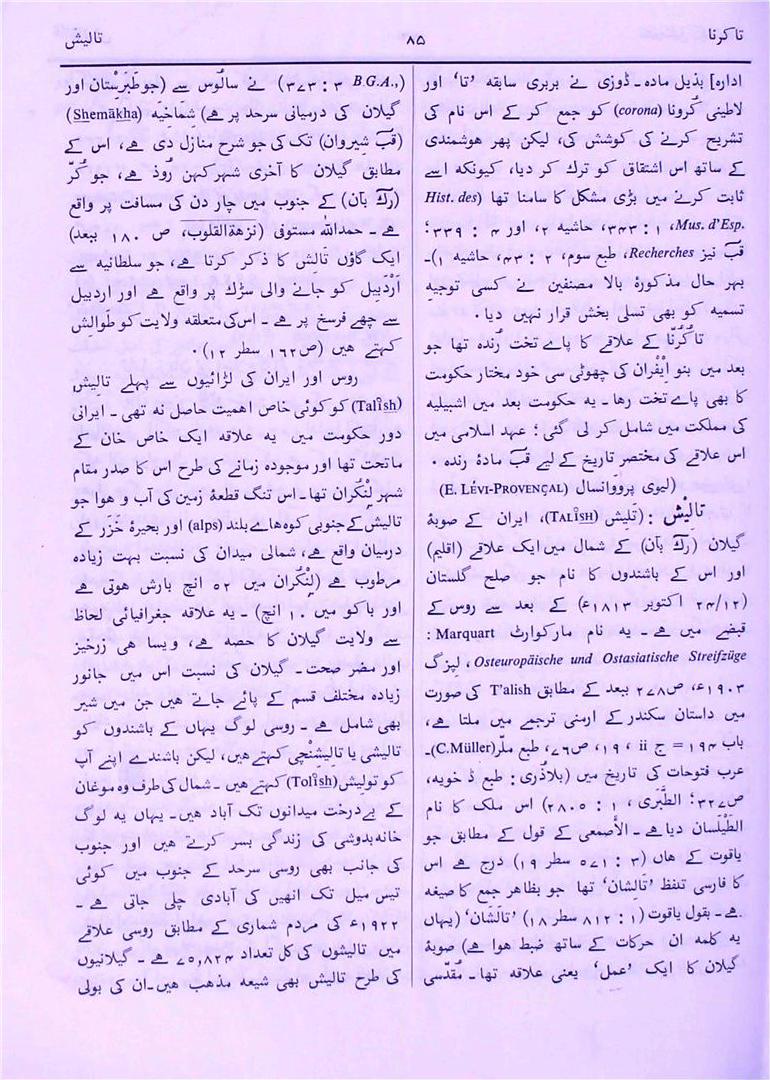 تاکرنا
۸۵
تالیش
ادارہ] بذیل مادہ ۔ ڈوزی نے بربری سابقہ ’تا‘ اور
لاطینی کرونا (corona) کو جمع کر کے اس نام کی
تشریح کرنے کی کوشش کی، لیکن پھر ہوشمندی
کے ساتھ اس اشتقاق کو ترک کر دیا، کیونکہ اسے
ثابت کرنے میں بڑی مشکل کا سامنا تھا (Hist. des
Mus. d'Esp.، ۱ : ۳۴۳، حاشیہ ۲، اور ۴ : ۳۳۹؛
قبَ نیز Recherches، طبع سوم، ۲ : ۴۳، حاشیہ ۱)۔
بہر حال مذکورۂ بالا مصنفین نے کسی توجیہِ
تسمیہ کو بھی تسلی بخش قرار نہیں دیا ۔
تاکُرُنّا کے علاقے کا پاے تخت رُندہ تھا جو
بعد میں بنو اِیْفَران کی چھوٹی سی خود مختار حکومت
کا بھی پاے تخت رہا ۔ یہ حکومت بعد میں اشبیلیہ
کی مملکت میں شامل کر لی گئی؛ عہد اسلامی میں
اس علاقے کی مختصر تاریخ کے لیے قبَ مادۂ رندہ ۔
(لیوی پرووانسال (E. LÉVI-PROVENÇAL)
تالِیْش : (تَلِیش (TALÏSH)، ایران کے صوبۂ
گیلان (رَكَ بآن) کے شمال میں ایک علاقے (اقلیم)
اور اس کے باشندوں کا نام جو صلح گلستان
(۲۴/۱۲ اکتوبر ۱۸۱۳ء) کے بعد سے روس کے
قبضے میں ہے ۔ یہ نام مارکوارٹ Marquart :
Osteuropäische und Ostasiatische Streifzüge، لپزگ
۱۹۰۳ء، ص ۲۷۸ ببعد کے مطابق T'alish کی صورت
میں داستان سکندر کے ارمنی ترجمے میں ملتا ہے،
باب ۱۹۴ = ج ii ، ۱۹، ص ۷۶، طبع ملّر (C.Müller)۔
عرب فتوحات کی تاریخ میں (بلاذُری : طبع ڈ خویہ،
ص ۳۲۷؛ الطَّبَری ، ۱ : ۲۸۰۵) اس ملک کا نام
الطَّیْلَسان دیا ہے ۔ الأصمعی کے قول کے مطابق جو
یاقوت کے ہاں (۳ : ۵۷۱ سطر ۱۹) درج ہے اس
کا فارسی تلفظ ’تالِشان‘ تھا جو بظاہر جمع کا صیغہ
ہے ۔ بقول یاقوت (۱ : ۸۱۲ سطر ۱۸) ’تالَشان‘ (یہاں
یہ کلمہ ان حرکات کے ساتھ ضبط ہوا ہے) صوبۂ
گیلان کا ایک ’عمل‘ یعنی علاقہ تھا ۔ مُقَدَّسی
(B.G.A.، ۳ : ۳۷۳) نے سالُوس سے (جو طَبَرِسْتان اور
گیلان کی درمیانی سرحد پر ہے) شِماخیَہ (Shemākha)
(قبَ شیروان) تک کی جو شرح منازل دی ہے، اس کے
مطابق گیلان کا آخری شہر کہن رُوذ ہے، جو کُرّ
(رَكَ بآن) کے جنوب میں چار دن کی مسافت پر واقع
ہے ۔ حمداللہ مستوفی (نزھةالقلوب، ص ۱۸۰ ببعد)
ایک گاؤں تالِش کا ذکر کرتا ہے، جو سلطانیہ سے
اَرْدَبیل کو جانے والی سڑک پر واقع ہے اور اردبیل
سے چھے فرسخ پر ہے ۔ اس کی متعلقہ ولایت کو طَوالِش
کہتے ہیں (ص ۱۶۲ سطر ۱۲) ۔
روس اور ایران کی لڑائیوں سے پہلے تالِیش
(Talïsh) کو کوئی خاص اہمیت حاصل نہ تھی ۔ ایرانی
دور حکومت میں یہ علاقہ ایک خاص خان کے
ماتحت تھا اور موجودہ زمانے کی طرح اس کا صدر مقام
شہر لِنْکُران تھا ۔ اس تنگ قطعۂ زمین کی آب و ہوا جو
تالیش کے جنوبی کوہ ہاے بلند (alps) اور بحیرۂ خَزَر کے
درمیان واقع ہے، شمالی میدان کی نسبت بہت زیادہ
مرطوب ہے (لِنْکُران میں ۵۲ انچ بارش ہوتی ہے
اور باکو میں ۱۰ انچ) ۔ یہ علاقہ جغرافیائی لحاظ
سے ولایت گیلان کا حصہ ہے، ویسا ہی زرخیز
اور مضر صحت ۔ گیلان کی نسبت اس میں جانور
زیادہ مختلف قسم کے پائے جاتے ہیں جن میں شیر
بھی شامل ہے ۔ روسی لوگ یہاں کے باشندوں کو
تالیشی یا تالیشِنْچی کہتے ہیں، لیکن باشندے اپنے آپ
کو تولیش (Tolïsh) کہتے ہیں ۔ شمال کی طرف وہ موغان
کے بے درخت میدانوں تک آباد ہیں ۔ یہاں یہ لوگ
خانہ بدوشی کی زندگی بسر کرتے ہیں اور جنوب
کی جانب بھی روسی سرحد کے جنوب میں کوئی
تیس میل تک انھیں کی آبادی چلی جاتی ہے ۔
۱۹۲۲ء کی مردم شماری کے مطابق روسی علاقے
میں تالیشوں کی کل تعداد ۷۵,۸۲۴ ہے ۔ گیلانیوں
کی طرح تالیش بھی شیعہ مذہب ہیں ۔ ان کی بولی